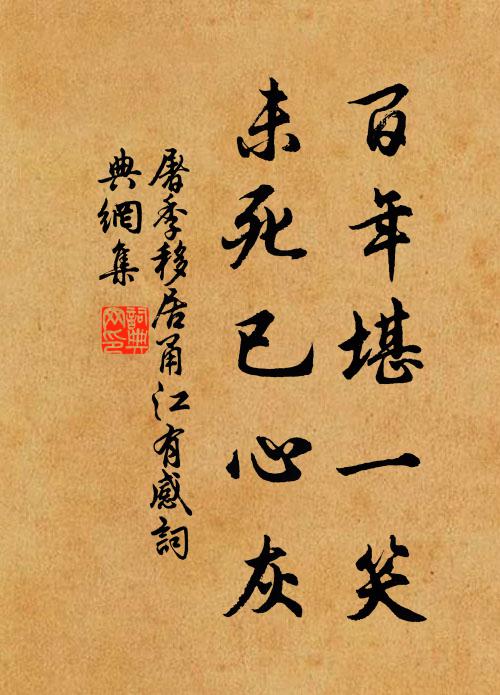 百年堪一笑
未死已心灰
屠季移居甬江有感詞
典網集
詞典
网印